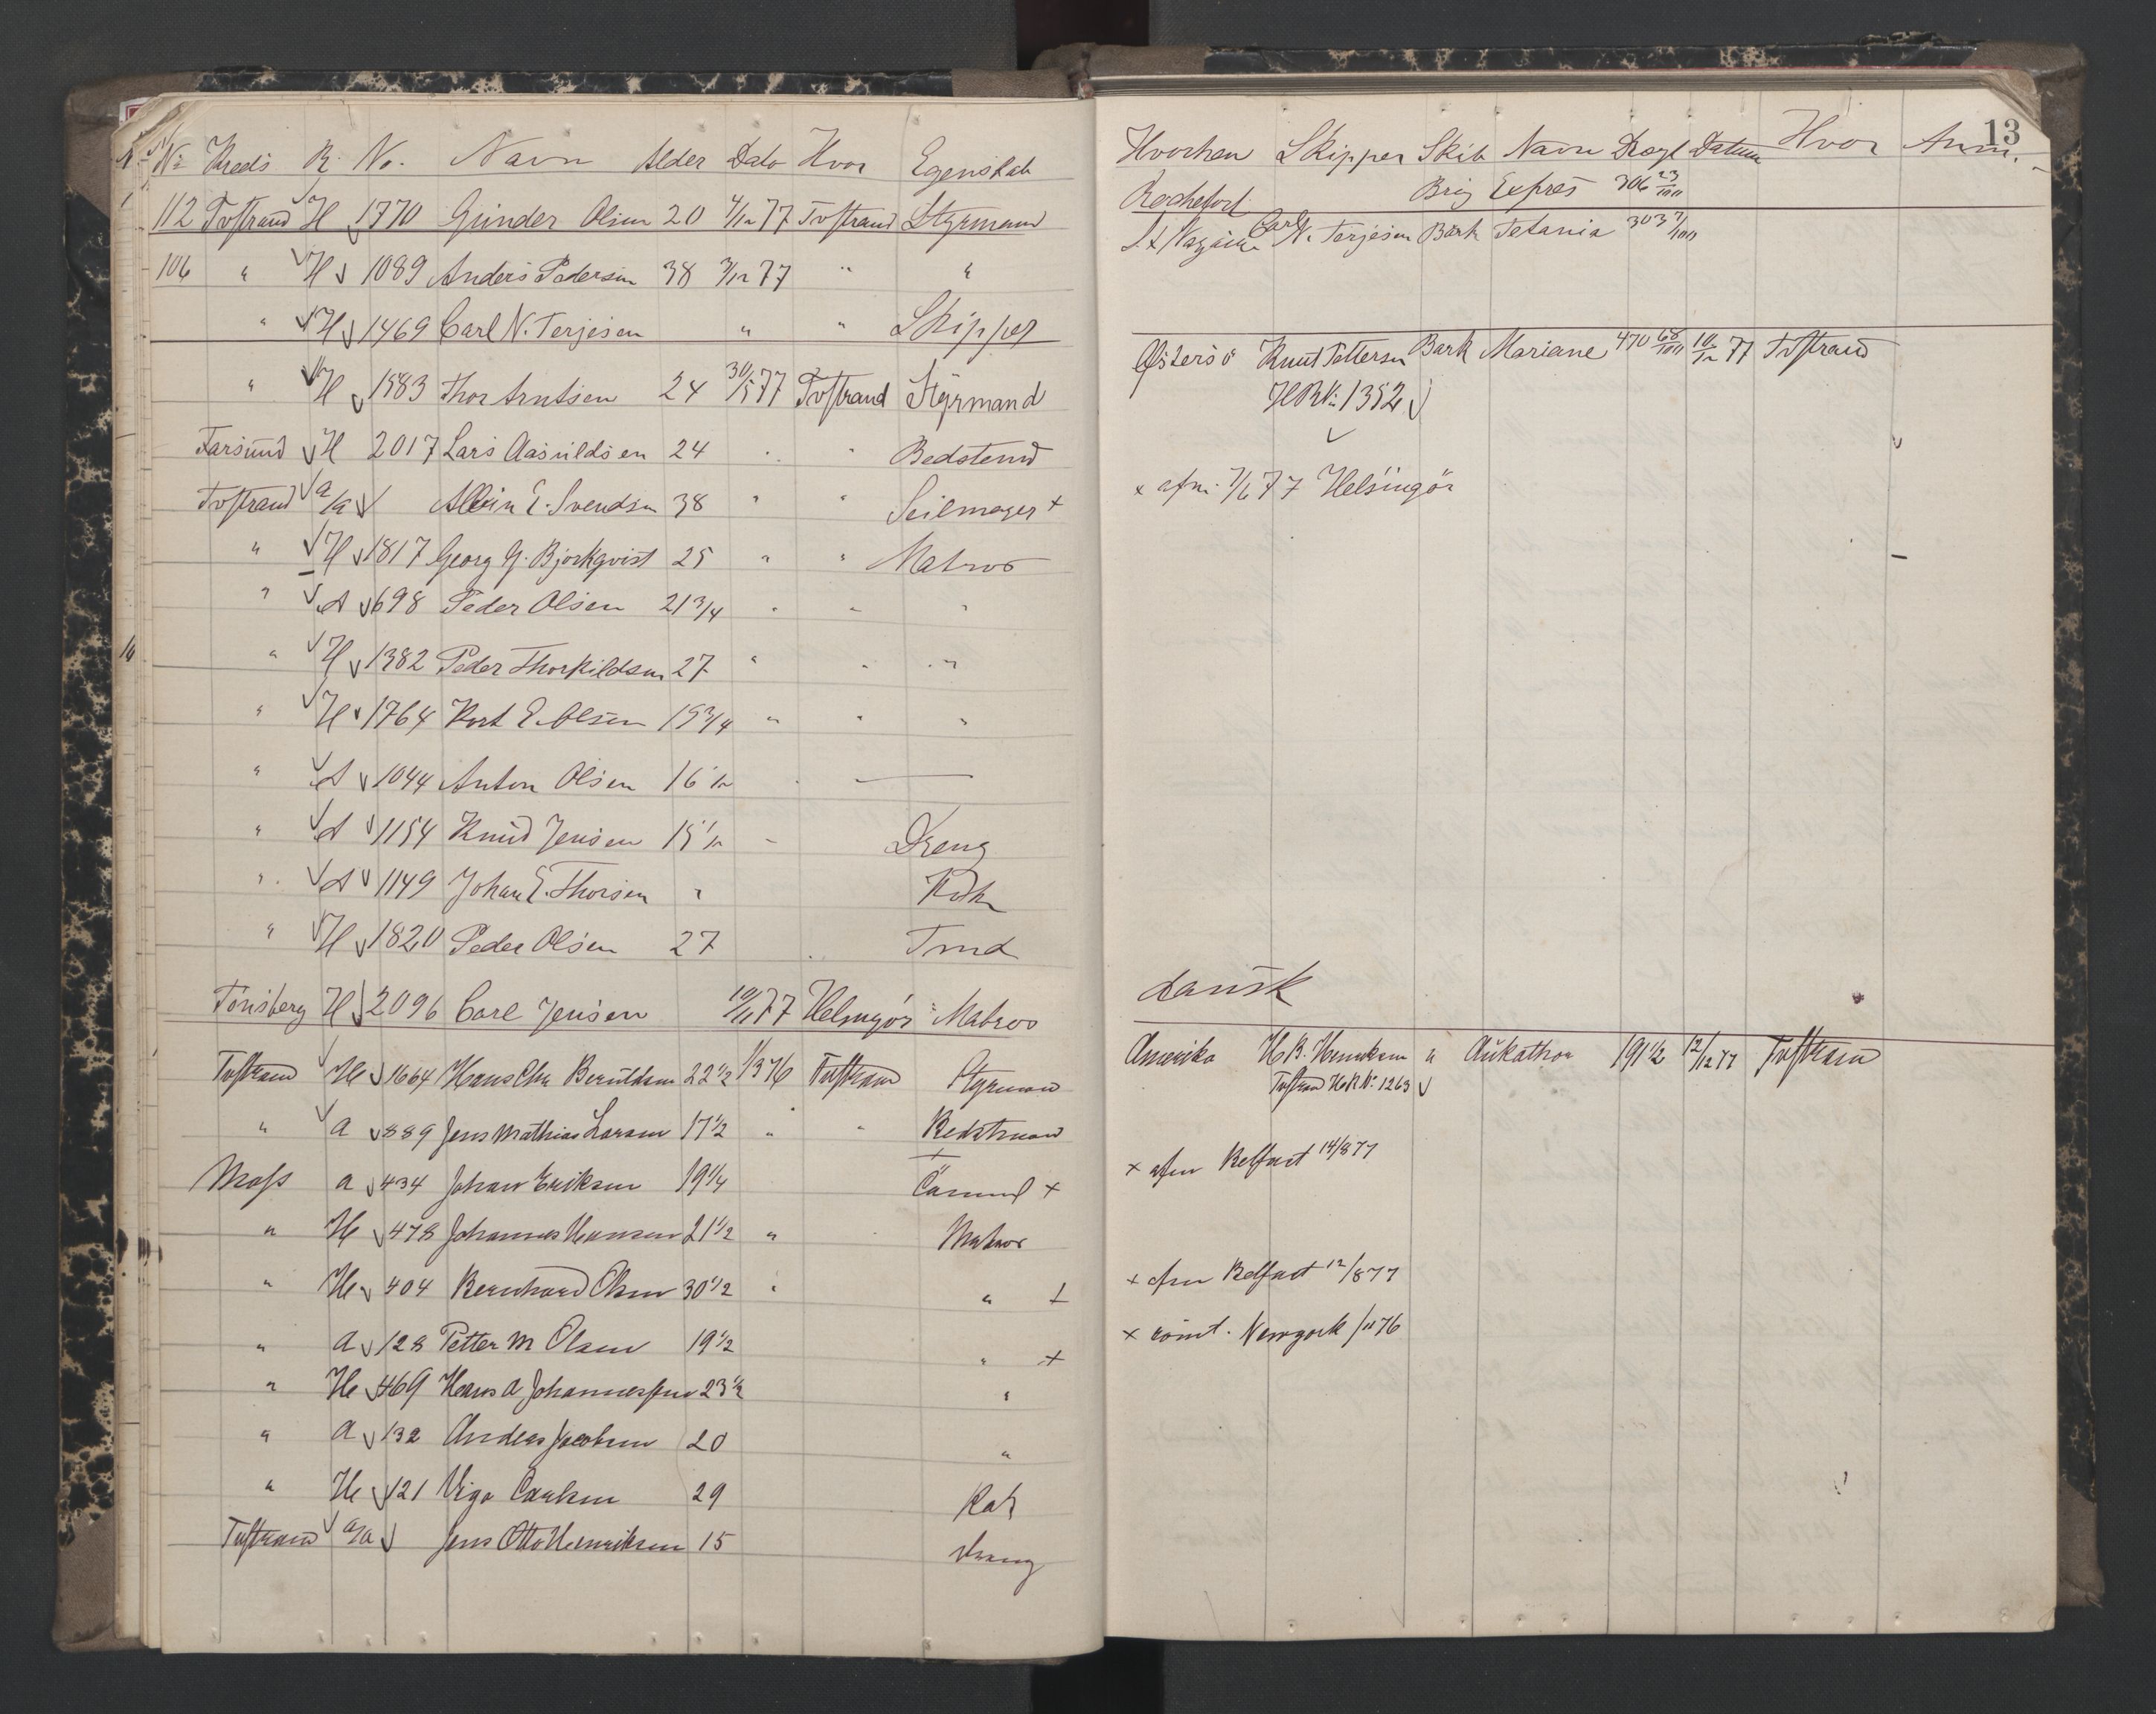 No Kreds R. No. Navn Alder Dato Hvor Egenskab
112 Tvstrand H 1770 Gunder Olsen 20 4/12 77 Tvstrand Styrmand
106 " H 1089 Anders Pedersen 38 3/12 77 " "
" H 1469 Carl N. Terjesen " " Skipper
" H 1583 Thor Arntsen 24 30/5 77 Tvstrand Styrmand
Farsund H 2017 Lars Aasuldsen 24 " " Bedstemd
Tvstrand a/a E. Svendsen 38 " " Seilmager +
" H 1817 Georg G. Bjorkqvist 25 " " Matros
" A 698 Peder Olsen 21 3/4 " " "
14 " H 1382 Peder Thorkildsen 27 " " "
" H 1764 E. Olsen 19 3/4 " " "
" A 1044 Anton Olsen 16 1/2 " —
" A 1154 Knud Jensen 15 1/2 " Dreng
" A 1149 Johan E. Thorsen " Kok
" H 1820 Peder Olsen 27 Tmd
Tönsberg H 2096 Carl Jensen 10/11 77 Helsingör Matros
Tvstrand H 1664 Hans Chr Beruldsen 22 1/2 1/3 76 Tvstrand Styrmand
" a 889 Jens Mathias Larsen 17 1/2 " " Bedstmand
Moss a 434 Johan Eriksen 19 1/4 +
" H 478 Johannes Hansen 21 1/2 " Matros
" H 404 Bernhard Olsen 30 1/2 " " +
" a 128 Petter M Olsen 19 1/2 " +
" H 469 Hans A Johannessen 23 1/2 "
" a 132 Andeas Jacobsen 20 "
" H 121 Vigo Carlsen 29 Kok
Tvstrand a/a Jens Otto Henriksen 15 dreng
13
Hvorhen Skipper Skib Navn Drægt Datum Hvor Anm.
Rochefort Brig Expres 306 23/100
St Nazaire Carl N. Terjesen Bark Tetania 303 7/100
Østersö Knut Pettersen Bark Mariane 470 68/100 10/12 77 Tvstrand
HR No 1352
x afm. 7/6 77 Helsingör
dansk
Amerika H B. Henriksen " 191 1/2 12/12 77 Tvstrand
Tvstrand H R No 1263
x afm Belfast 14/8 77
x afm Belfast 12/8 77
x römt. Newyork /11 76